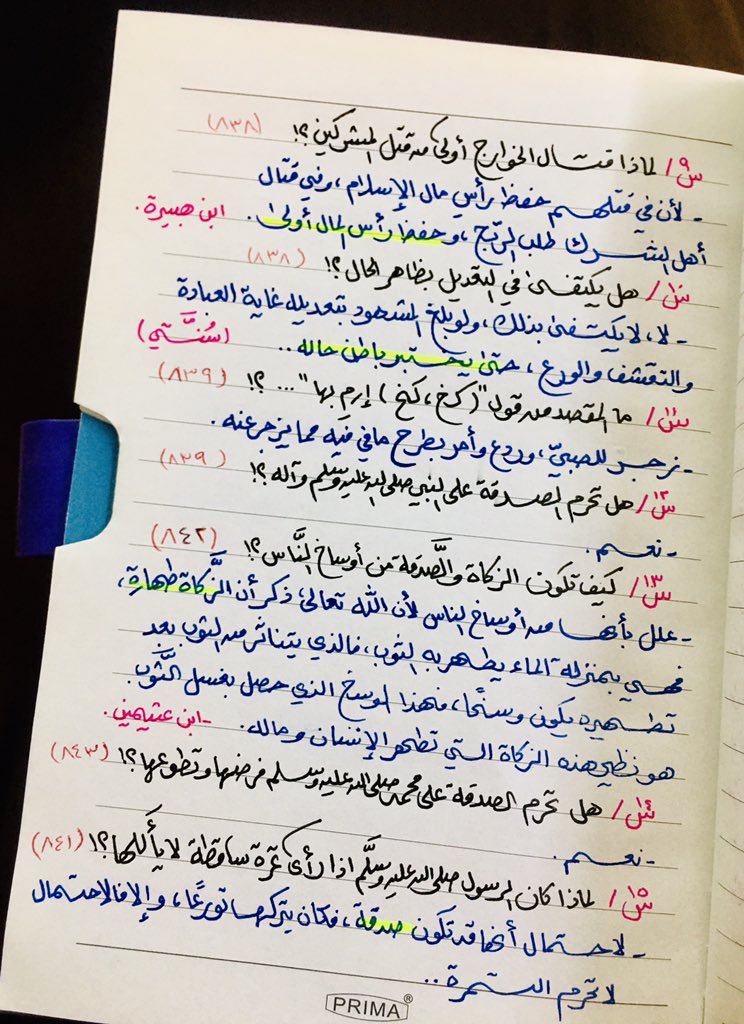 س٩/ لماذا قتال الخوارج أولى من قتل المشركين؟! (٨٣٨)
- لأن في قتلهم حفظ رأس مال الإسلام، وفي قتال
أهل الشرك طلب الربح، وحفظ رأس المال أولى. ابن هبيرة.
س١٠/ هل يكتفى في التعديل بظاهر الحال؟! (٨٣٨)
- لا، لا يكتفى بذلك، ولو بلغ المشهود بتعديله غاية العبادة
والتقشف والورع، حتى يختبر باطن حاله.. (سُنَّتي)
س١١/ ما المقصد من قول "(كخ، كخ) إرمِ بها"...؟! (٨٣٩)
- زجر للصبيّ، وردع وأمر بطرح ما في فيه مما يزجر عنه.
س١٢/ هل تحرم الصدقة على النبي صلى الله عليه وسلم وآله؟! (٨٣٩)
- نعم.
س١٣/ كيف تكون الزكاة والصَّدقة من أوساخ النَّاس؟! (٨٤٢)
- علل بأنها من أوساخ الناس لأن الله تعالى ذكر أن الزَّكاة طهارة،
فهي بمنزلة الماء يطهر به الثوب، فالذي يتناثر من الثوب بعد
تطهيره يكون وسخًا، فهذا الوسخ الذي حصل بغسل الثَّوب
هو نظير هذه الزكاة التي تطهر الإنسان وماله. - ابن عثيمين.
س١٤/ هل تحرم الصدقة على محمد صلى الله عليه وسلم فرضها وتطوعها؟! (٨٤٣)
- نعم.
س١٥/ لماذا كان الرسول صلى الله عليه وسلَّم اذا رأى تمرة ساقطة لا يأكلها؟! (٨٤١)
- لاحتمال أنها قد تكون صدقة، فكان يتركها تورعًا، وإلا فالاحتمال
لا تحرم التمرة..
PRIMA®